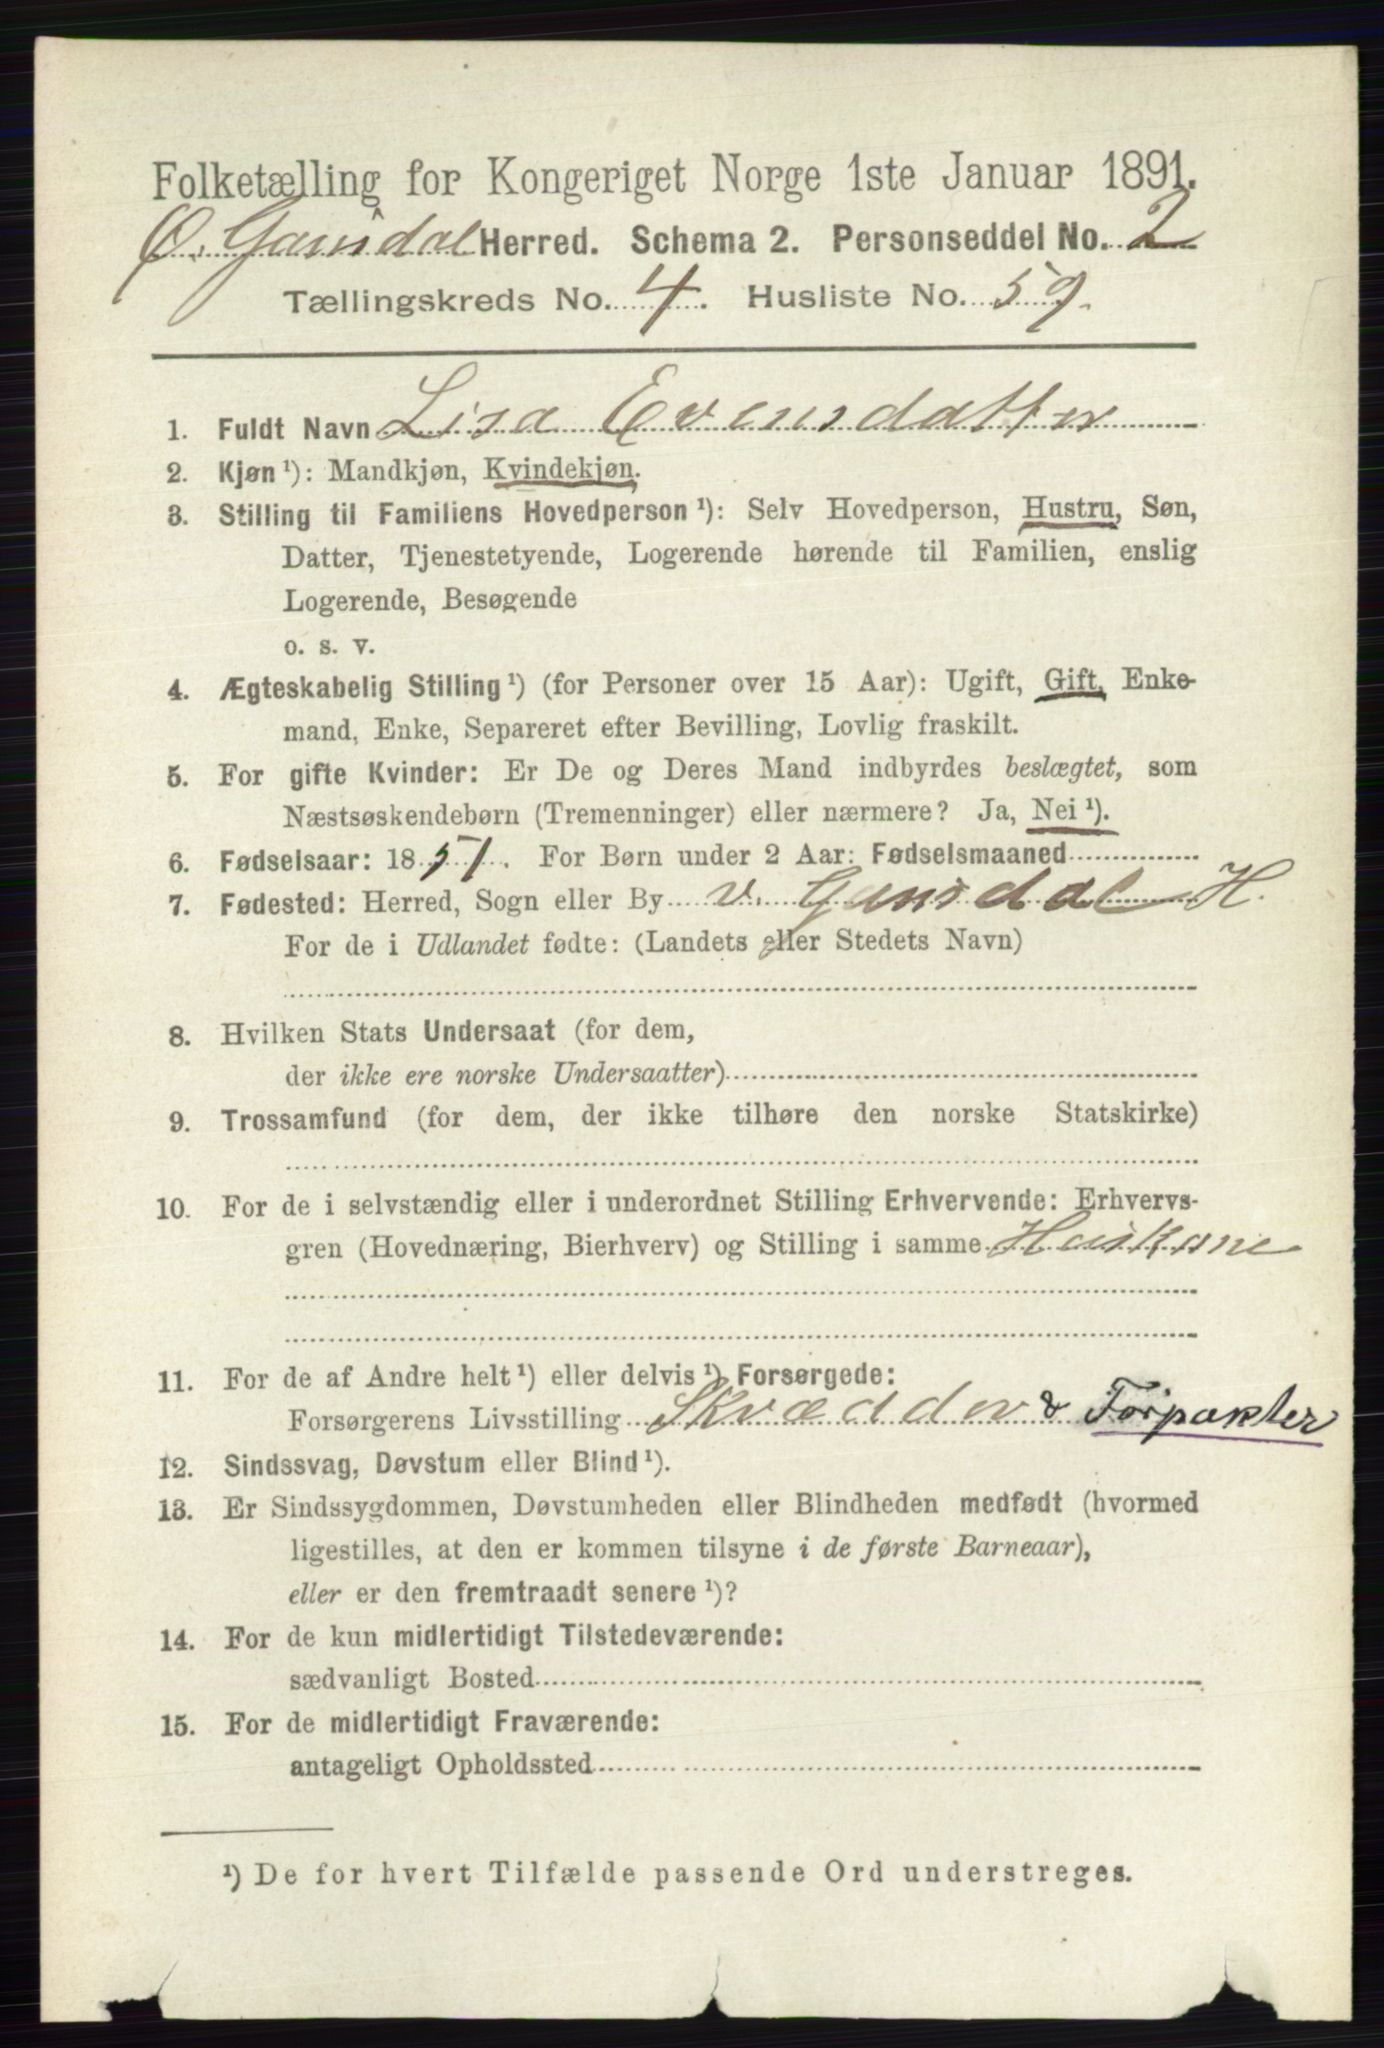 Folketælling for Kongeriget Norge 1ste Januar 1891.
Ø. Gausdal Herred. Schema 2. Personseddel No. 2
Tællingskreds No. 4. Husliste No. 59.
1. Fuldt Navn Lisa Evensdatter
2. Kjøn ¹): Mandkjøn, Kvindekjøn.
3. Stilling til Familiens Hovedperson ¹): Selv Hovedperson, Hustru, Søn,
Datter, Tjenestetyende, Logerende hørende til Familien, enslig
Logerende, Besøgende
o. s. v.
4. Ægteskabelig Stilling ¹) (for Personer over 15 Aar): Ugift, Gift, Enke-
mand, Enke, Separeret efter Bevilling, Lovlig fraskilt.
5. For gifte Kvinder: Er De og Deres Mand indbyrdes beslægtet, som
Næstsøskendebørn (Tremenninger) eller nærmere? Ja, Nei ¹).
6. Fødselsaar: 1851. For Børn under 2 Aar: Fødselsmaaned
7. Fødested: Herred, Sogn eller By V. Gausdal H.
For de i Udlandet fødte: (Landets eller Stedets Navn)
8. Hvilken Stats Undersaat (for dem,
der ikke ere norske Undersaatter)
9. Trossamfund (for dem, der ikke tilhøre den norske Statskirke)
10. For de i selvstændig eller i underordnet Stilling Erhvervende: Erhvervs-
gren (Hovednæring, Bierhverv) og Stilling i samme Huskone
11. For de af Andre helt ¹) eller delvis ¹) Forsørgede:
Forsørgerens Livsstilling Skrædder & Forpakter
12. Sindssvag, Døvstum eller Blind ¹).
13. Er Sindssygdommen, Døvstumheden eller Blindheden medfødt (hvormed
ligestilles, at den er kommen tilsyne i de første Barneaar),
eller er den fremtraadt senere ¹)?
14. For de kun midlertidigt Tilstedeværende:
sædvanligt Bosted
15. For de midlertidigt Fraværende:
antageligt Opholdssted
¹) De for hvert Tilfælde passende Ord understreges.